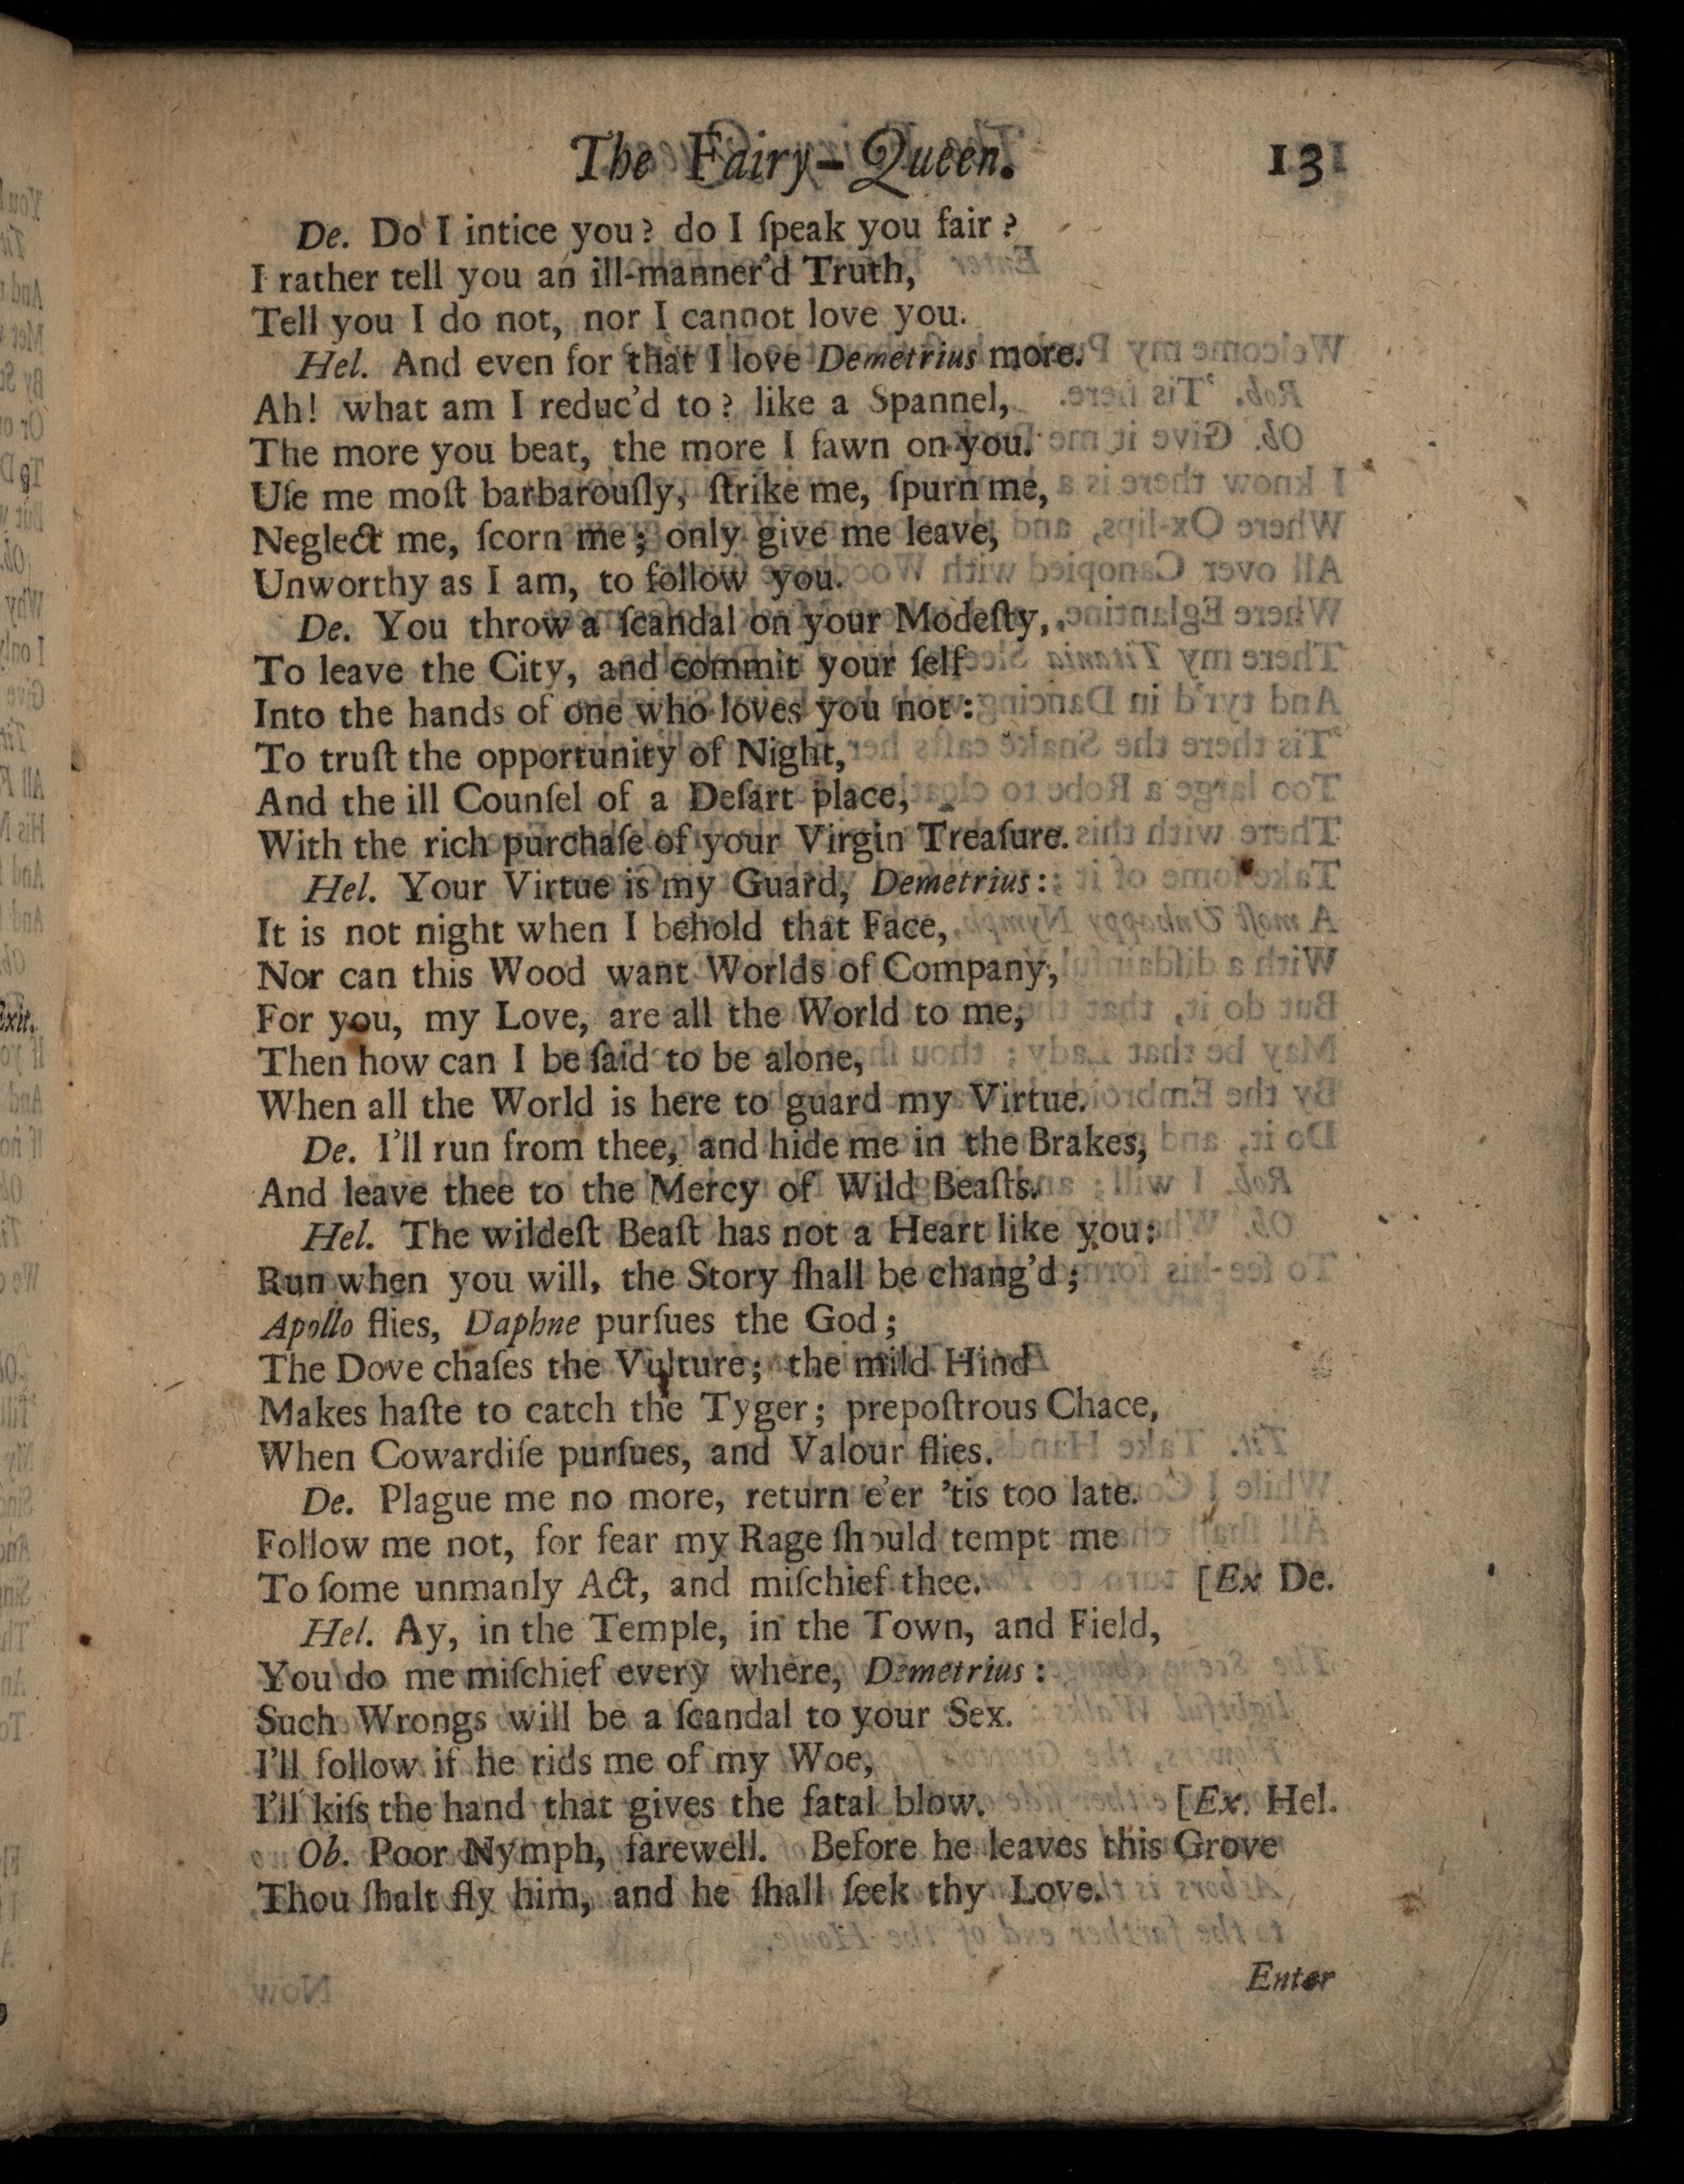 The Fairy-Queen. 13
De. Do I intice you? do I ſpeak you fair?
I rather tell you an ill-manner'd Truth,
Tell you I do not, nor I cannot love you.
Hel. And even for that I love Demetrius more.
Ah! what am I reduc'd to? like a Spannel,
The more you beat, the more I fawn on you.
Uſe me moſt barbarouſly, ſtrike me, ſpurn me,
Neglect me, ſcorn me; only give me leave,
Unworthy as I am, to follow you.
De. You throw a ſcandal on your Modeſty,
To leave the City, and commit your ſelf
Into the hands of one who loves you not:
To truſt the opportunity of Night,
And the ill Counſel of a Deſart place,
With the rich purchaſe of your Virgin Treaſure.
Hel. Your Virtue is my Guard, Demetrius:
It is not night when I behold that Face,
Nor can this Wood want Worlds of Company,
For you, my Love, are all the World to me,
Then how can I be ſaid to be alone,
When all the World is here to guard my Virtue.
De. I'll run from thee, and hide me in the Brakes,
And leave thee to the Mercy of Wild Beaſts.
Hel. The wildeſt Beaſt has not a Heart like you:
Run when you will, the Story ſhall be chang'd;
Apollo flies, Daphne purſues the God;
The Dove chaſes the Vulture; the mild Hind
Makes haſte to catch the Tyger; prepoſtrous Chace,
When Cowardiſe purſues, and Valour flies.
De. Plague me no more, return e'er 'tis too late.
Follow me not, for fear my Rage ſhould tempt me
To ſome unmanly Act, and miſchief thee. [Ex De.
Hel. Ay, in the Temple, in the Town, and Field,
You do me miſchief every where, Demetrius:
Such Wrongs will be a ſcandal to your Sex.
I'll follow if he rids me of my Woe,
I'll kiſs the hand that gives the fatal blow. [Ex. Hel.
Ob. Poor Nymph, farewell. Before he leaves this Grove
Thou ſhalt fly him, and he ſhall ſeek thy Love.
Enter